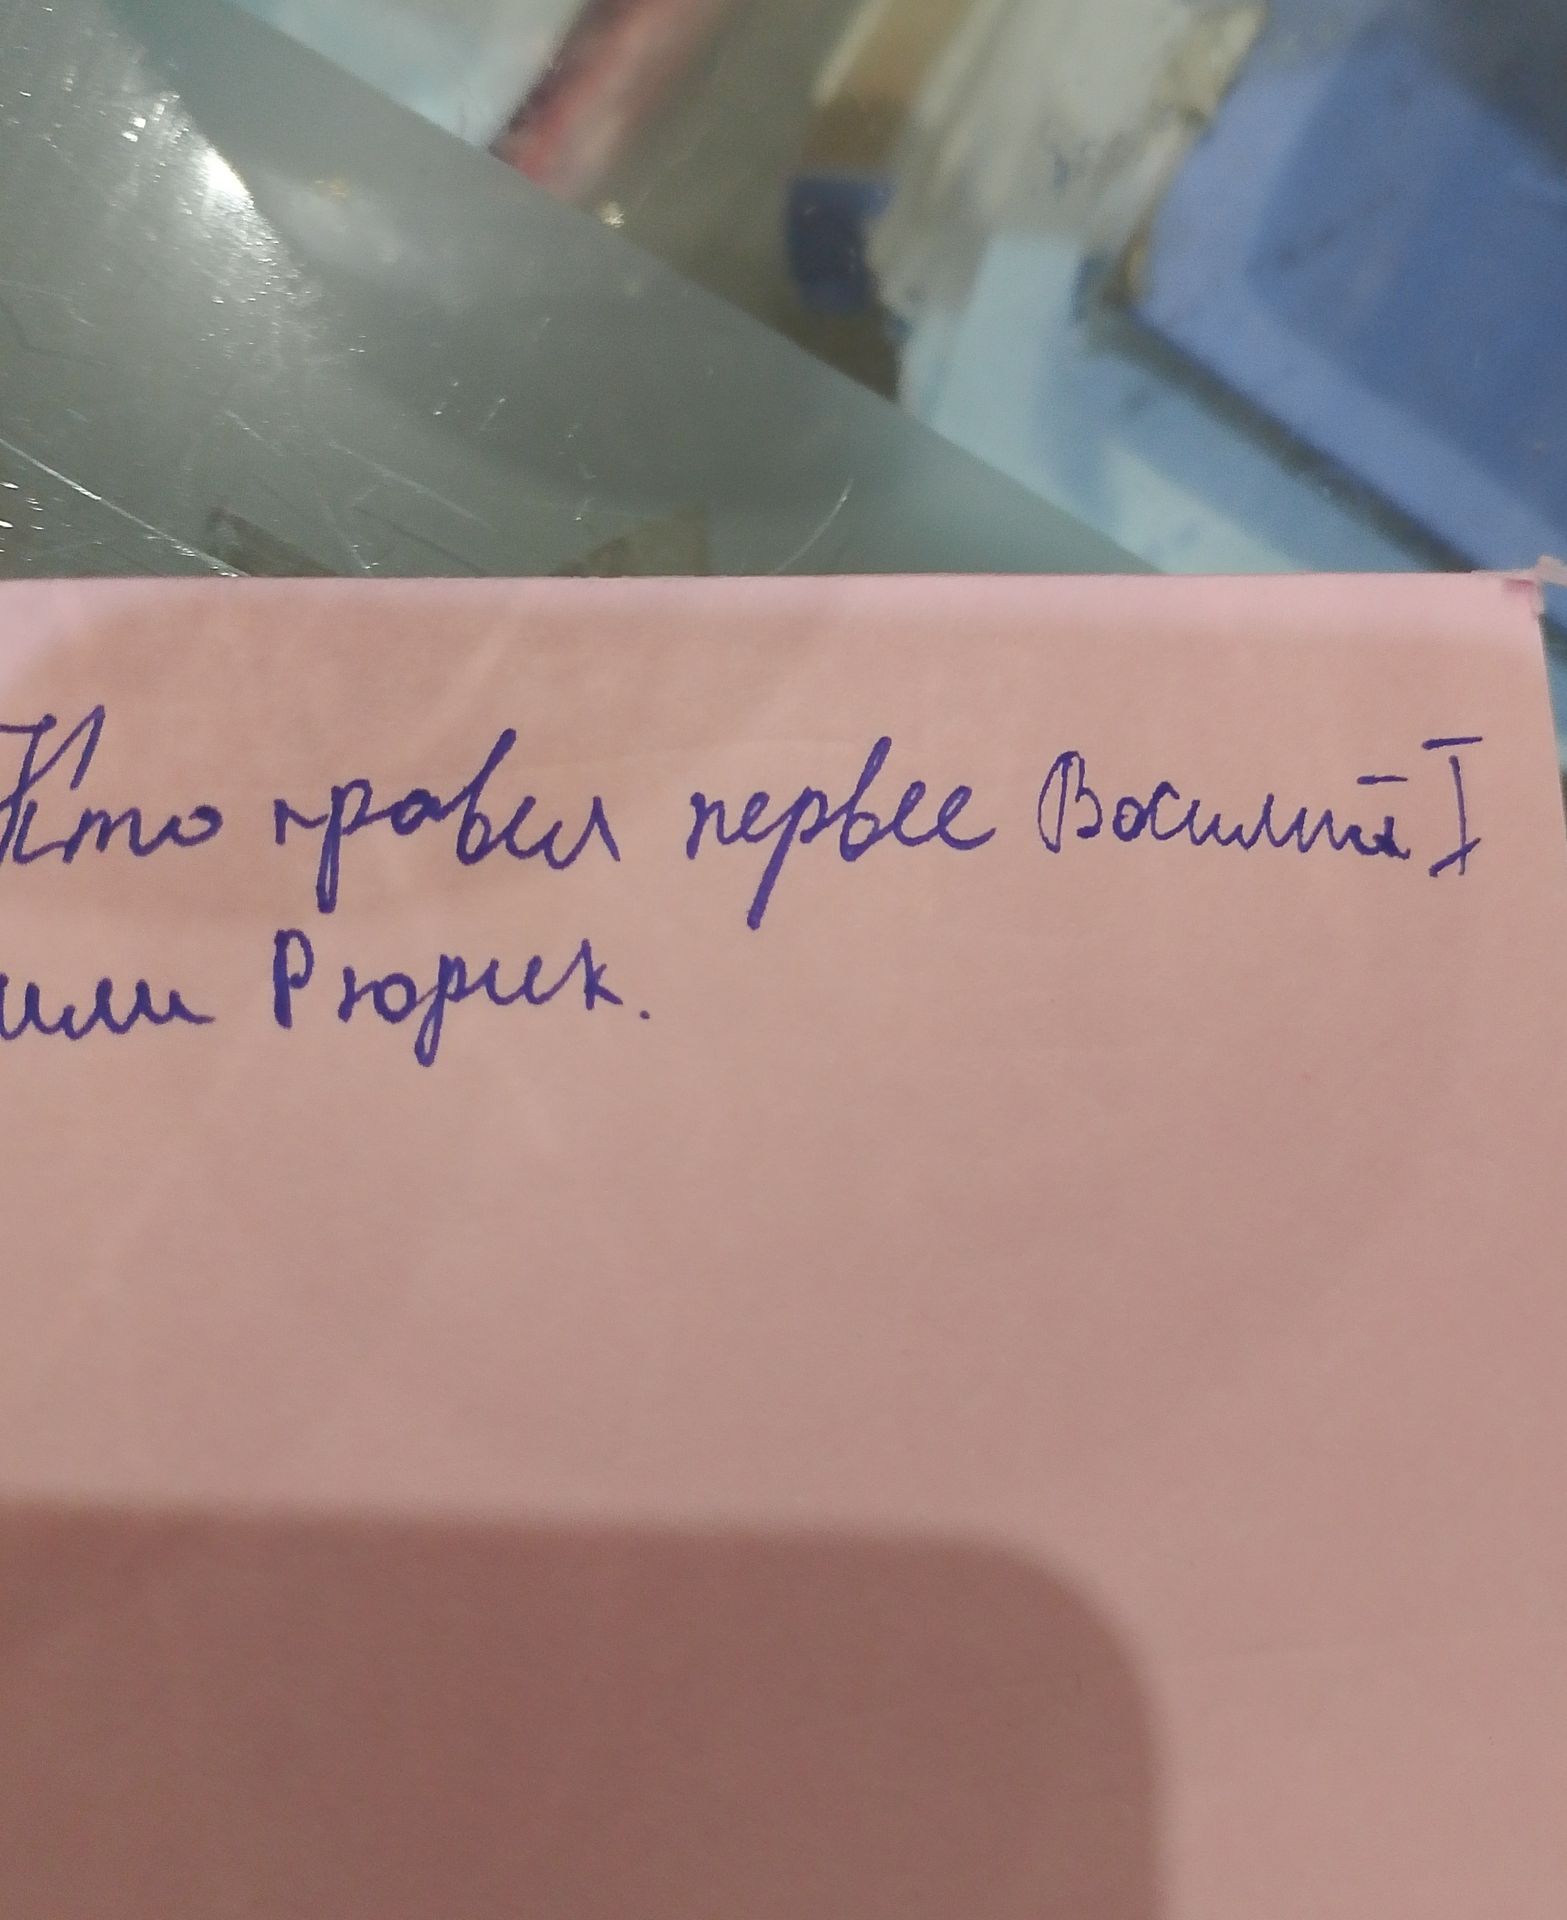 Кто правил первее Василий I
или Рюрик.